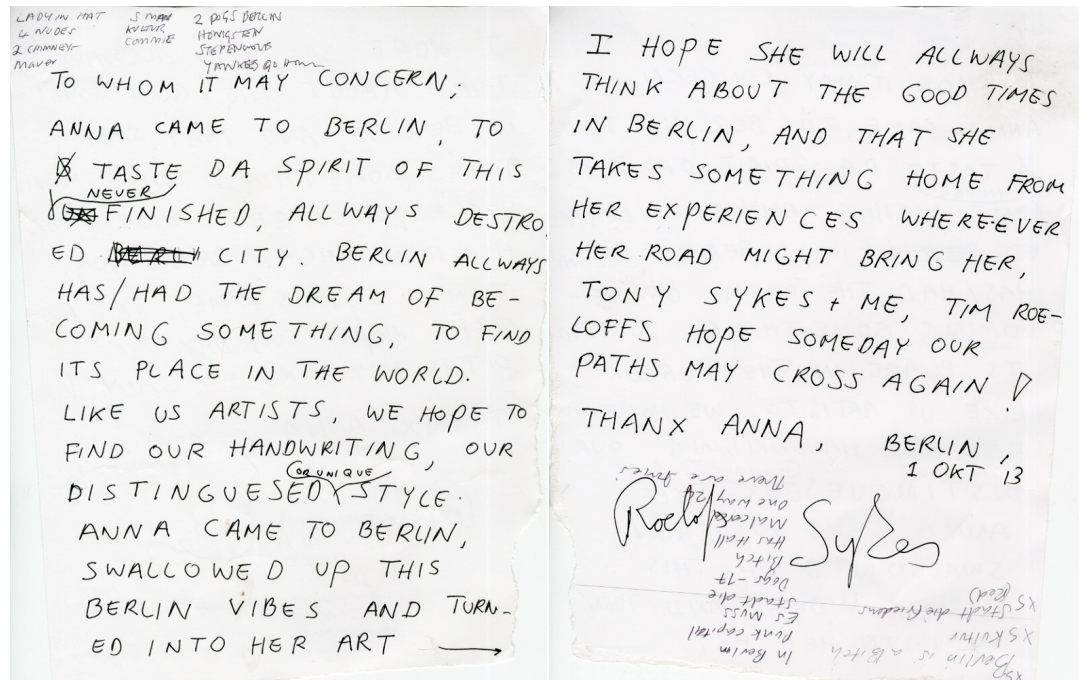 LADY IN HAT
4 NUDES
2 CHIMNEY
Maver
S MAN
KULTUR
COMMIE
2 DOGS BERLIN
HONIGSTEIN
YANKEES GO
TO WHOM IT MAY CONCERN,
ANNA CAME TO BERLIN, TO
TASTE DA SPIRIT OF THIS
NEVER
FINISHED, ALLWAYS DESTRO
ED CITY. BERLIN ALLWAYS
HAS/HAD THE DREAM OF BE-
COMING SOMETHING, TO FIND
ITS PLACE IN THE WORLD.
LIKE US ARTISTS WE HOPE TO
FIND OUR HANDWRITING, OUR
OR UNIQUE
DISTINGUESED STYLE.
ANNA CAME TO BERLIN,
SWALLOWED UP THIS
BERLIN VIBES AND TURN-
ED INTO HER ART
I HOPE SHE WILL ALLWAYS
THINK ABOUT THE GOOD TIMES
IN BERLIN, AND THAT SHE
TAKES SOMETHING HOME FROM
HER EXPERIENCES WHERE-EVER
HER ROAD MIGHT BRING HER,
TONY SYKES + ME, TIM ROE-
LOFFS HOPE SOMEDAY OUR
PATHS MAY CROSS AGAIN!
THANX ANNA, BERLIN,
1 OKT '13
Roeloffs Sykes
XS Berlin is a Bitch
XS Kultur
XS Stadt die Friedens
(Red)
In Berlin
Punk capital
Es Muss
Stadt die
Dogs - 17
Bitch
Has Hall
one way
There are